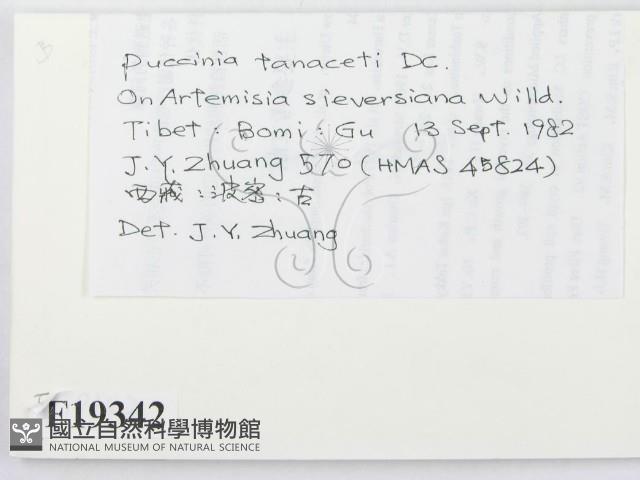 Puccinia tanaceti DC.
On Artemisia sieversiana Willd.
Tibet : Bomi : Gu 13 Sept. 1982
J.Y. Zhuang 570 (HMAS 45824)
西藏 : 波密 : 古
Det. J.Y. Zhuang
F19342
國立自然科學博物館
NATIONAL MUSEUM OF NATURAL SCIENCE